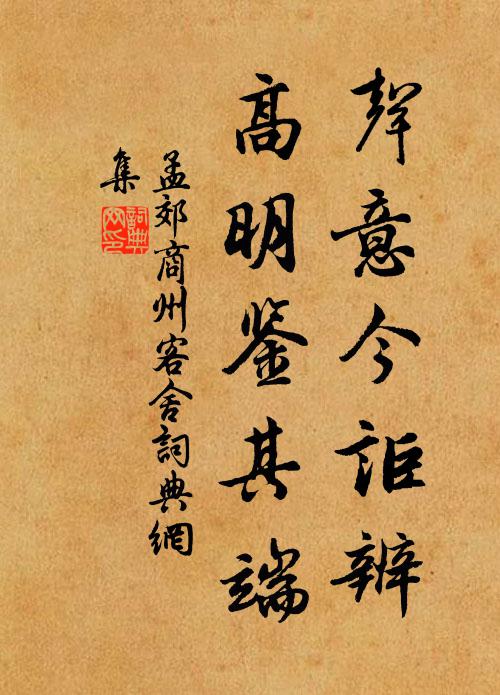 聲意今詎辨
高明鉴其端
孟郊商州客舍詞典網
集
詞典網印